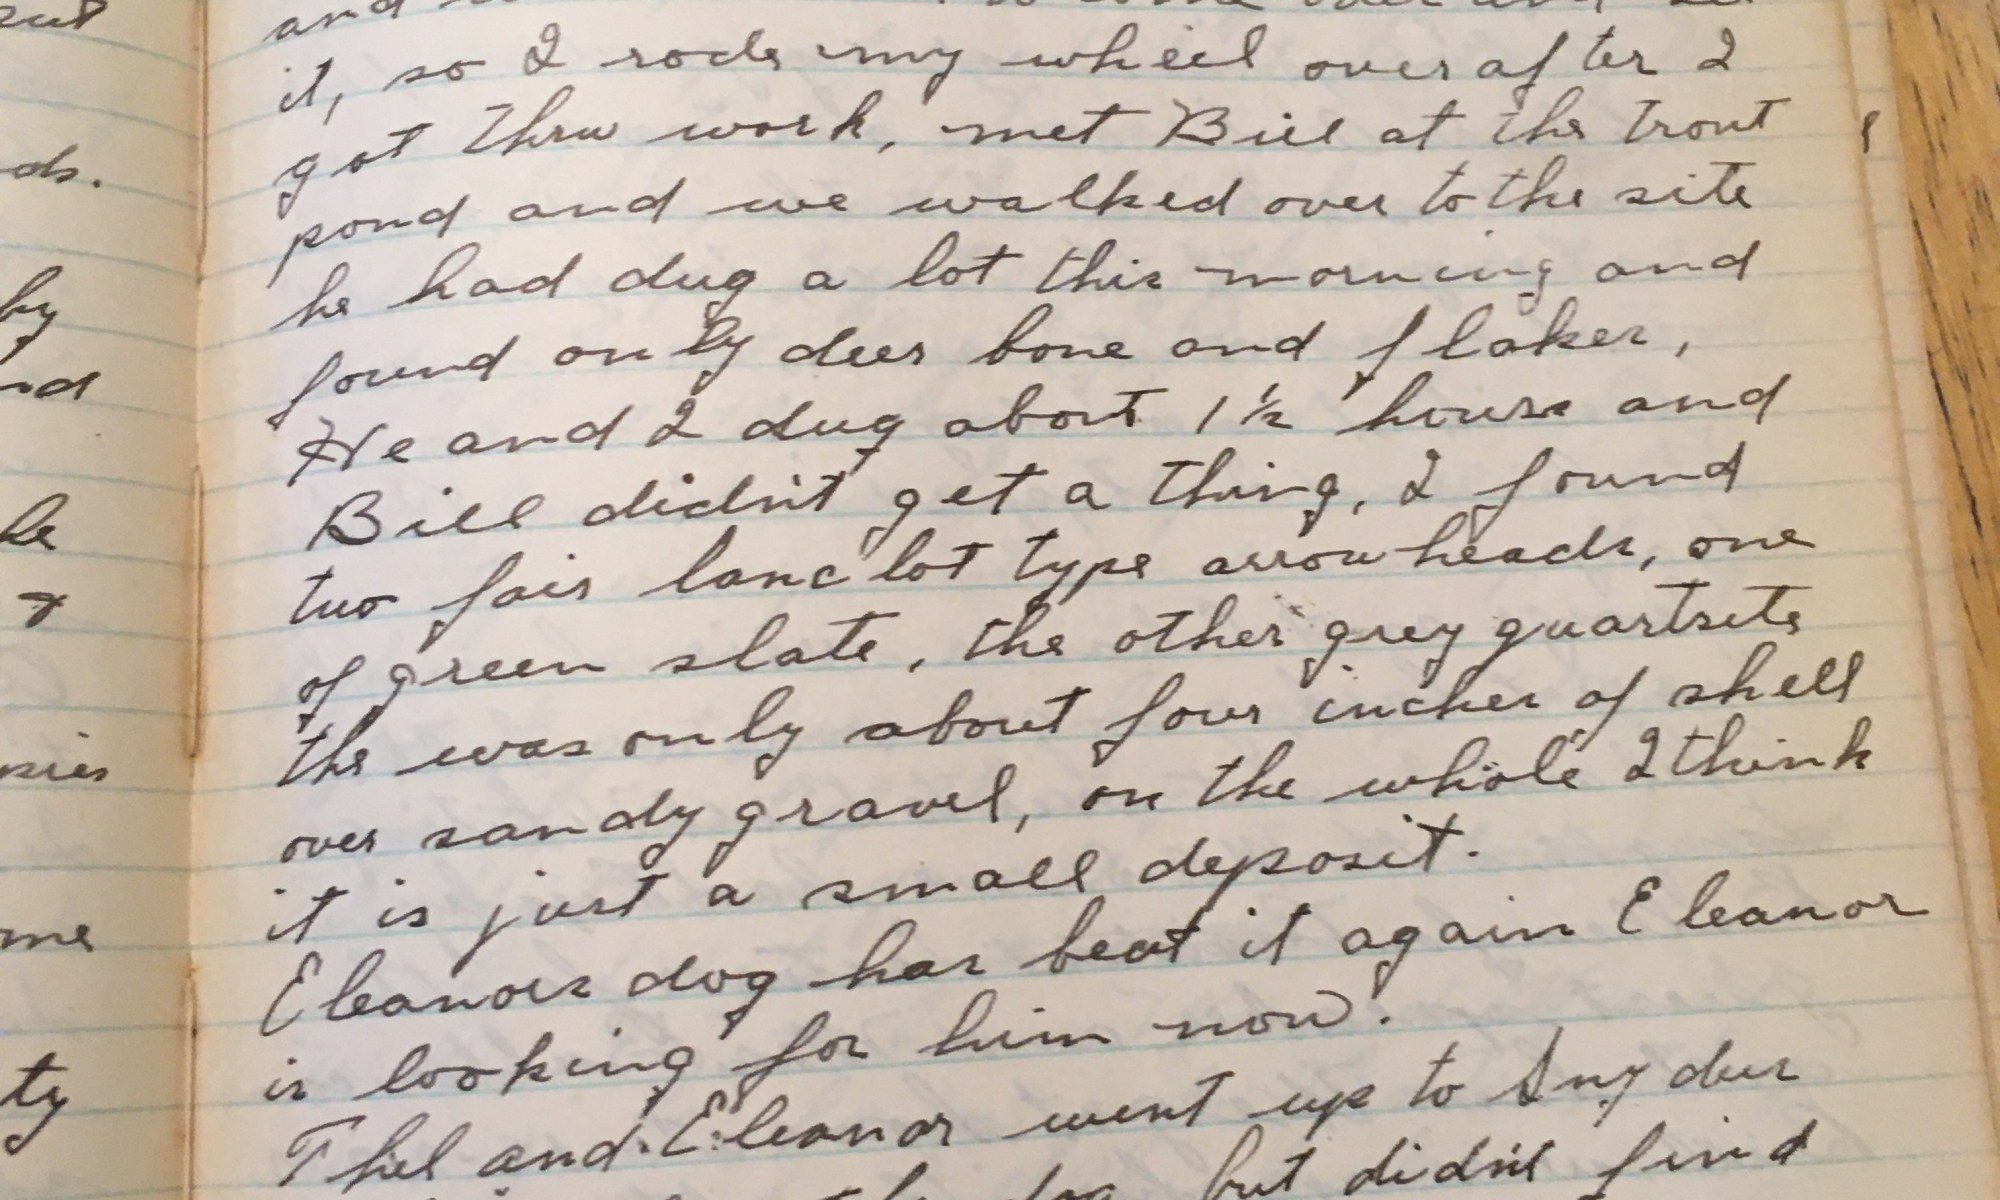 and
it, so I rode my wheel over after I
got thru work, met Bill at the trout
pond and we walked over to the site
he had dug a lot this morning and
found only deer bone and flakes,
He and I dug about 1 ½ hours and
Bill didn't get a thing, I found
two fair lanclot type arrowheads, one
of green slate, the other grey quartsite
the was only about four inches of shell
over sandy gravel, on the whole I think
it is just a small deposit.
Eleanors dog has beat it again Eleanor
is looking for him now.
Thel and Eleanor went up to Snyder
but didn't find
ds.
by
ty